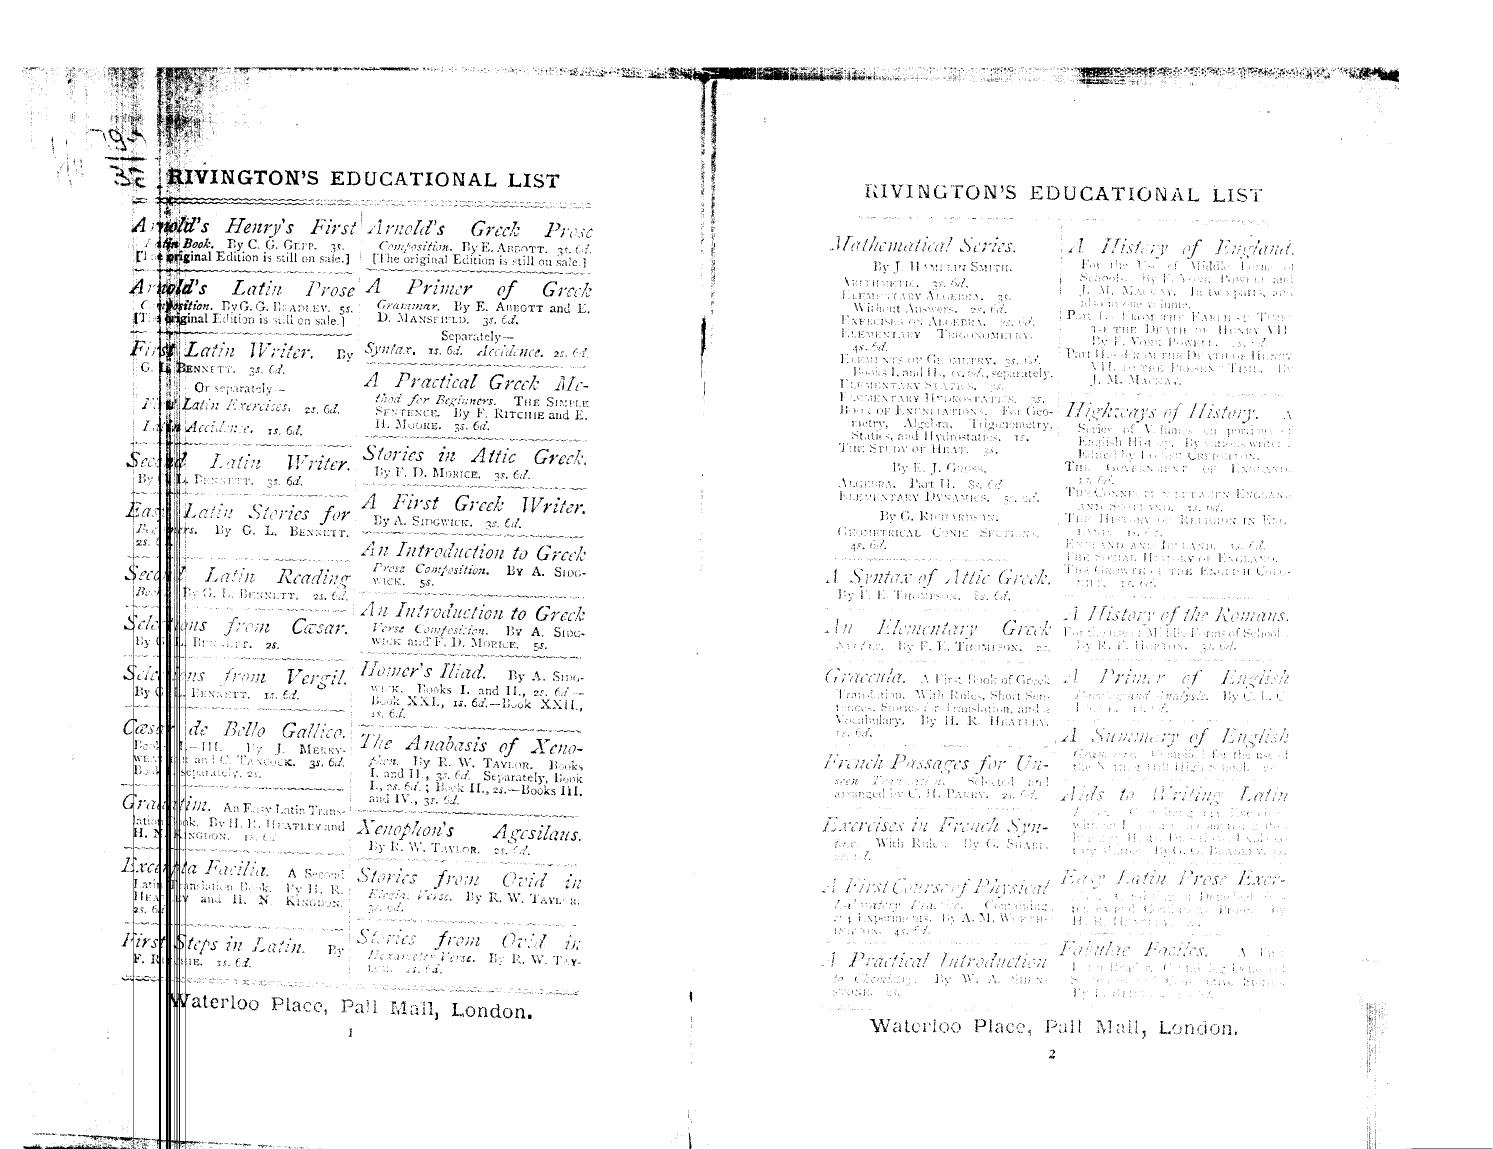 RIVINGTON'S EDUCATIONAL LIST
Arnold's Henry's First
Latin Book. By C. G. GEPP. 3s.
[The original Edition is still on sale.]
Arnold's Latin Prose
Composition. By G. G. BRADLEY. 5s.
[The original Edition is still on sale.]
First Latin Writer. By
G. L. BENNETT. 3s. 6d.
Or separately—
First Latin Exercises. 2s. 6d.
Latin Accidence. 1s. 6d.
Second Latin Writer.
By G. L. BENNETT. 3s. 6d.
Easy Latin Stories for
Beginners. By G. L. BENNETT.
2s.
Second Latin Reading
Book. By G. L. BENNETT. 2s. 6d.
Selections from Cæsar.
By G. L. BENNETT. 2s.
Selections from Vergil.
By G. L. BENNETT. 1s. 6d.
Cæsar de Bello Gallico.
Books I.—III. By J. MERRY-
WEATHER and C. TANCOCK. 3s. 6d.
Book I. separately. 2s.
Gradatim. An Easy Latin Trans-
lation Book. By H. R. HEATLEY and
H. N. KINGDON. 1s. 6d.
Excerpta Facilia. A Second
Latin Translation Book. By H. R.
HEATLEY and H. N. KINGDON.
2s. 6d.
First Steps in Latin. By
F. RITCHIE. 1s. 6d.
Arnold's Greek Prose
Composition. By E. ABBOTT. 3s. 6d.
[The original Edition is still on sale.]
A Primer of Greek
Grammar. By E. ABBOTT and E.
D. MANSFIELD. 3s. 6d.
Separately—
Syntax. 1s. 6d. Accidence. 2s. 6d.
A Practical Greek Me-
thod for Beginners. THE SIMPLE
SENTENCE. By F. RITCHIE and E.
H. MOORE. 3s. 6d.
Stories in Attic Greek.
By F. D. MORICE. 3s. 6d.
A First Greek Writer.
By A. SIDGWICK. 3s. 6d.
An Introduction to Greek
Prose Composition. By A. SIDG-
WICK. 5s.
An Introduction to Greek
Verse Composition. By A. SIDG-
WICK and F. D. MORICE. 5s.
Homer's Iliad. By A. SIDG-
WICK. Books I. and II., 2s. 6d.—
Book XXI., 1s. 6d.—Book XXII.,
1s. 6d.
The Anabasis of Xeno-
phon. By R. W. TAYLOR. Books
I. and II., 3s. 6d. Separately, Book
I., 2s. 6d.; Book II., 2s.—Books III.
and IV., 3s. 6d.
Xenophon's Agesilaus.
By R. W. TAYLOR. 2s. 6d.
Stories from Ovid in
Elegiac Verse. By R. W. TAYLOR.
3s. 6d.
Stories from Ovid in
Hexameter Verse. By R. W. TAY-
LOR. 2s. 6d.
Waterloo Place, Pall Mall, London.
1
RIVINGTON'S EDUCATIONAL LIST
Mathematical Series.
By J. HAMBLIN SMITH.
ARITHMETIC. 3s. 6d.
ELEMENTARY ALGEBRA. 3s.
Without Answers. 2s. 6d.
EXERCISES ON ALGEBRA. 2s. 6d.
ELEMENTARY TRIGONOMETRY.
4s. 6d.
ELEMENTS OF GEOMETRY. 3s. 6d.
Books I. and II., 1s. 6d., separately.
ELEMENTARY STATICS. 3s.
ELEMENTARY HYDROSTATICS. 3s.
BOOK OF ENUNCIATIONS. For Geo-
metry, Algebra, Trigonometry,
Statics, and Hydrostatics. 1s.
THE STUDY OF HEAT. 3s.
By E. J. GROSS.
ALGEBRA. Part II. 8s. 6d.
ELEMENTARY DYNAMICS. 5s. 6d.
By G. RICHARDSON.
GEOMETRICAL CONIC SECTIONS.
4s. 6d.
A Syntax of Attic Greek.
By F. E. THOMPSON. 8s. 6d.
An Elementary Greek
Syntax. By F. E. THOMPSON. 2s.
Græcula. A First Book of Greek
Translation. With Rules, Short Sen-
tences, Stories for Translation, and a
Vocabulary. By H. R. HEATLEY.
1s. 6d.
French Passages for Un-
seen Translation. Selected and
arranged by C. H. PARRY. 2s. 6d.
Exercises in French Syn-
tax. With Rules. By G. SHARP.
A First Course of Physical
Laboratory Practice. Containing
Experiments. By A. M. WORTH-
INGTON. 4s. 6d.
A Practical Introduction
to Chemistry. By W. A. SHEN-
STONE. 2s.
A History of England.
For the Use of Middle Forms of
Schools. By F. YORK POWELL and
J. M. MACKAY. In two parts, and
also in one volume.
Part I.—FROM THE EARLIEST TIMES
TO THE DEATH OF HENRY VII.
By F. YORK POWELL. 2s. 6d.
Part II.—FROM THE DEATH OF HENRY
VII. TO THE PRESENT TIME. By
J. M. MACKAY.
Highways of History. A
Series of Volumes on portions of
English History. By various writers.
Edited by LOUISE CREIGHTON.
THE GOVERNMENT OF ENGLAND.
1s. 6d.
THE CONNECTION BETWEEN ENGLAND
AND SCOTLAND. 1s. 6d.
THE HISTORY OF RELIGION IN ENG-
LAND. 1s. 6d.
ENGLAND AND IRELAND. 1s. 6d.
THE SOCIAL HISTORY OF ENGLAND.
THE GROWTH OF THE ENGLISH COLO-
NIES. 1s. 6d.
A History of the Romans.
For the use of Middle Forms of Schools.
By R. F. HORTON. 3s. 6d.
A Primer of English
Parsing and Analysis. By C. L. C.
A Summary of English
Grammar. Compiled for the use of
the Notting Hill High School. 2s.
Aids to Writing Latin
Easy Latin Prose Exer-
Fabulae Faciles. A First
Waterloo Place, Pall Mall, London.
2